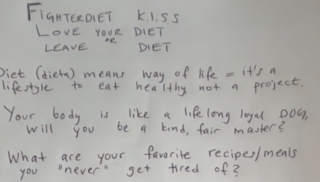 FIGHTERDIET K.I.S.S
LOVE YOUR DIET
OR
LEAVE DIET
Diet (dieta) means way of life = it's a
lifestyle to eat healthy not a project.
Your body is like a lifelong loyal DOG,
will you be a kind, fair master?
What are your favorite recipes/meals
you "never" get tired of?